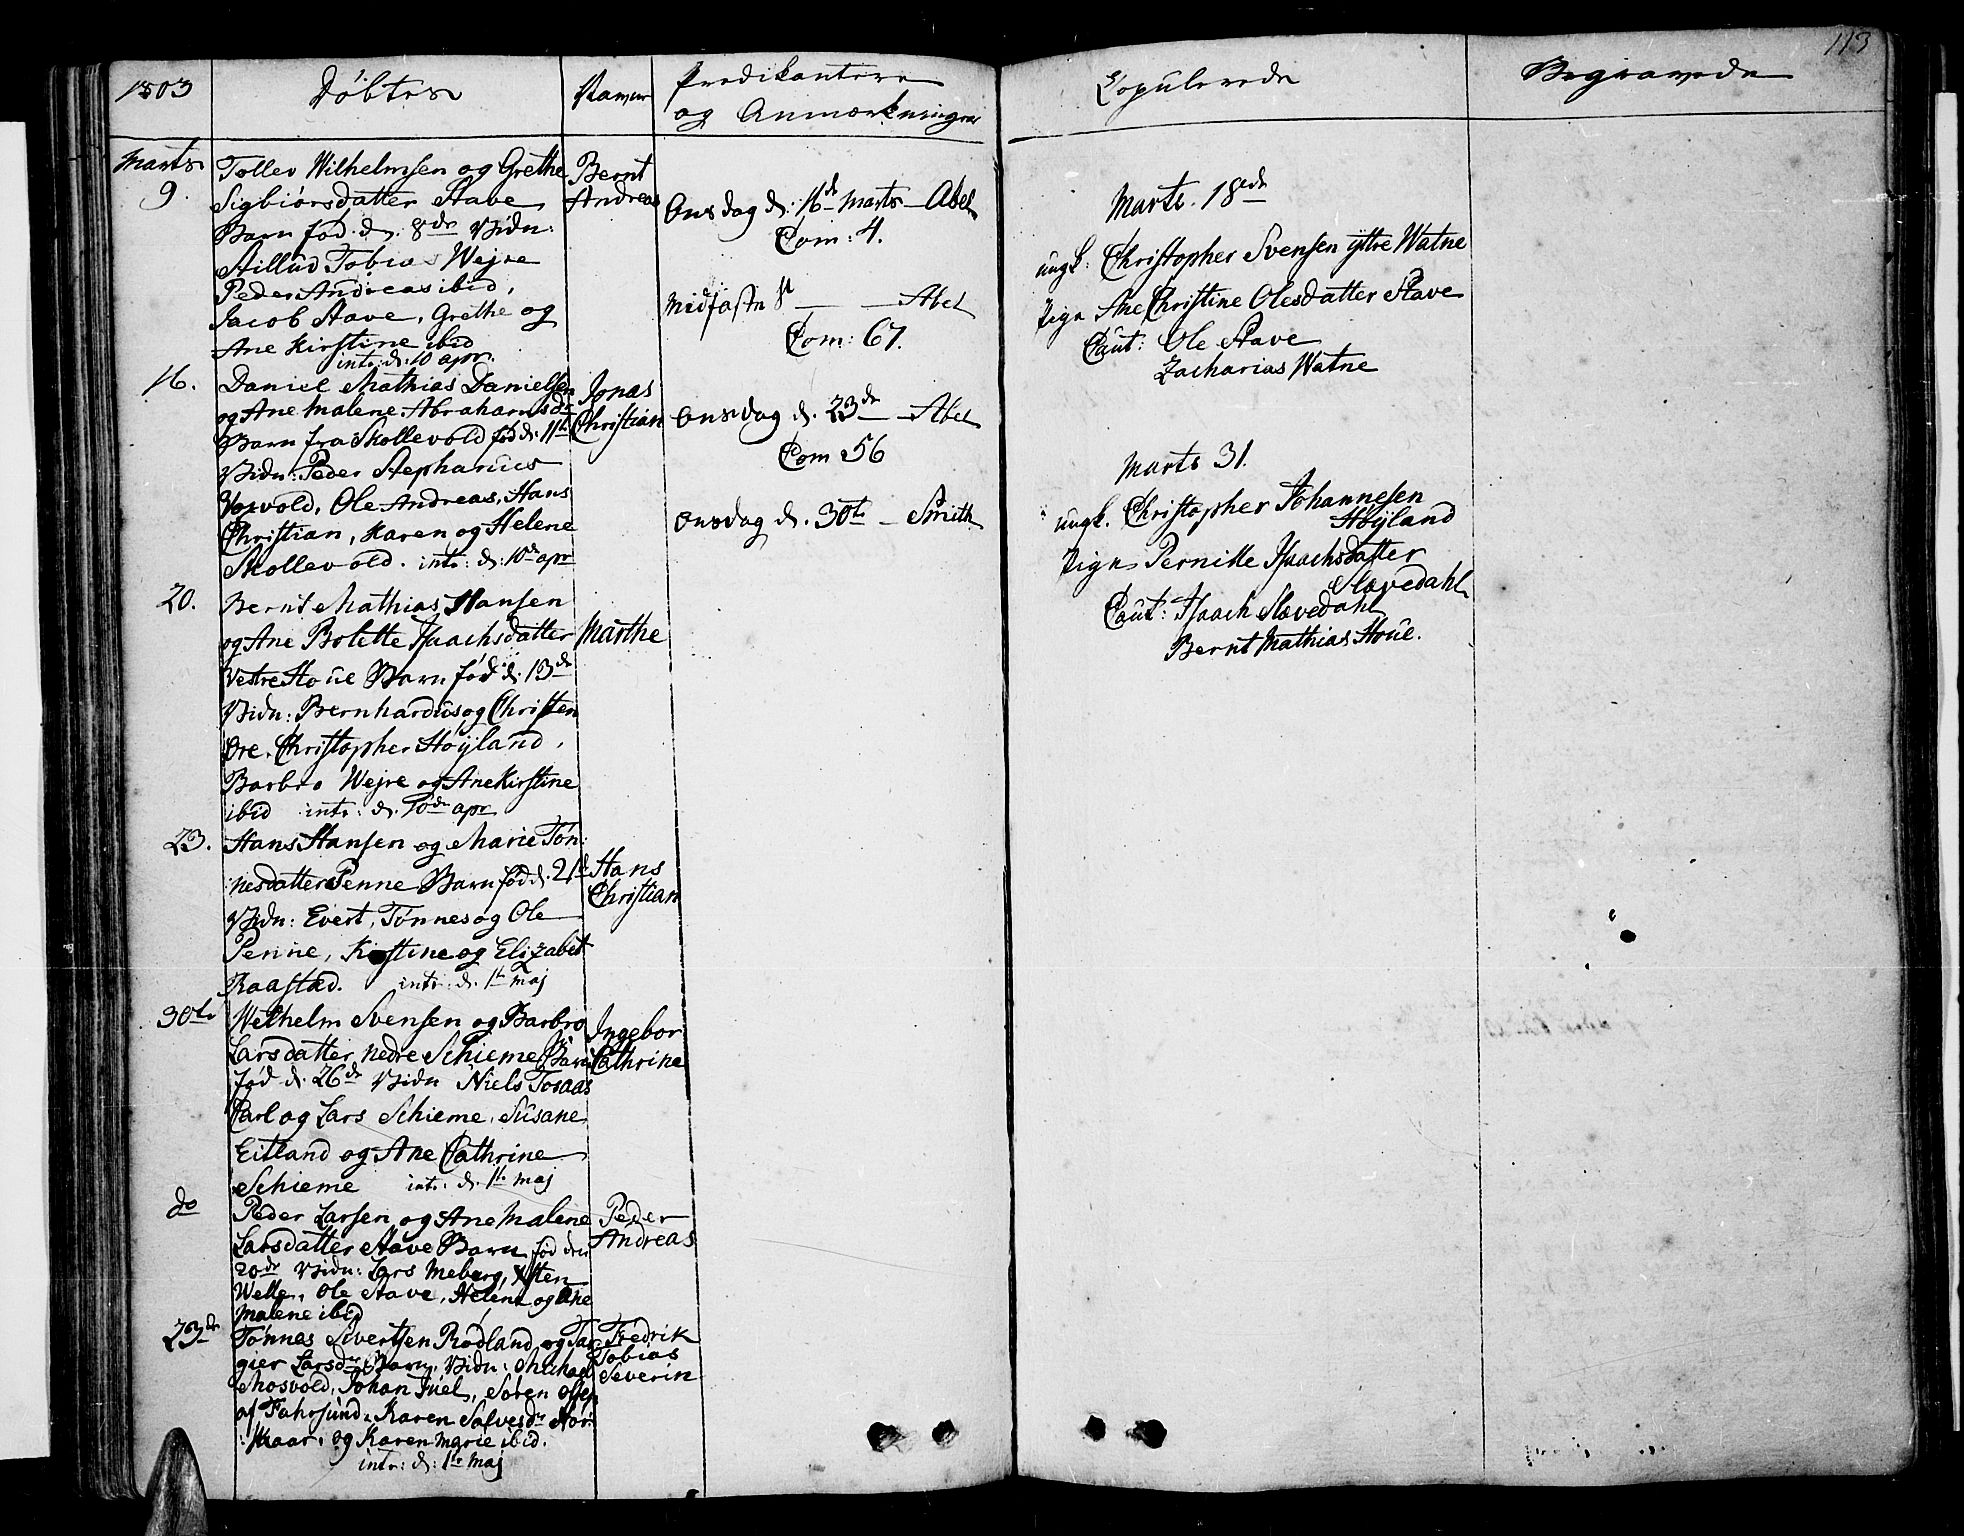 113
1803
Døbte
Navne
Predikantere
og Anmærkninger
Copulerede
Begravede
Marts
9.
Tollev Wilhelmsen og Grethe
Sigbiørsdatter Stave
Barn fød. d. 8de Vidn:
Aillud Tobias Wejre
Peder Andreas ibid,
Jacob Stave, Grethe og
Ane Kirstine ibid
intr: d: 10 apr.
Bernt
Andreas
16.
Daniel Mathias Danielsen
og Ane Malene Abrahamsd:
Barn fra Skollevold fød d. 11te
Vidn: Peder Stephanus
Vorvold, Ole Andreas, Hans
Christian, Karen og Helene
Skollevold. intr: d: 10de apr
Jonas
Christian
20.
Bernt Mathias Hansen
og Ane Bolette Isaachsdatter
Vestre Houe Barn fød d. 13de
Vidn: Bernhardus og Christen
Ore, Christopher Høyland,
Barbro Wejre og Ane Kirstine
ibid intr: d. 10de apr
Marthe
23.
Hans Hansen og Marie Tøn:
nesdatter Penne Barn fød d. 21de
Vidn: Evert, Tønnes og Ole
Penne, Kirstine og Elizabet
Raastad. intr: d. 1te maj
Hans
Christian
30te
Welhelm Svensen og Barbro
Larsdatter nedre Schieme Barn
fød d. 26de Vidn Niels Tosaas
Carl og Lars Schieme, Susane
Eitland og Ane Cathrine
Schieme intr: d. 1te maj
Ingebor
Cathrine
do
Peder Larsen og Ane Malene
Larsdatter Stave Barn fød den
20de Vidn: Lars Meberg, Østen
Welle, Ole Stave, Helene og Ane
Malene ibid
Peder
Andreas
23de
Tønnes Sivertsen Rødland og Tar
gier Larsdr Barn, Vidn: Michael
Mosvold, Johan Juel, Søren Olsen
af Fahrsund, Karen Salvesdr Nor:
:kaar, og Karen Marie ibid.
intr: d: 1te maj
Fredrik
Tobias
Severin
Onsdag d: 16de Marts – Abel
Com: 4.
Midfaste S. — — Abel
Com: 67.
Onsdag d. 23de — Abel
Com 56
Onsdag d. 30te – Smith
Marts. 18ede
ungk: Christopher Svensen yttre Watne
Pige Ane Christine Olesdatter Stave
Caut: Ole Stave
Zacharias Watne
Marts 31.
ungk. Christopher Johannesen
Høyland
Pige Pernille Isaachsdatter
Slævedahl
Caut: Isaach Slævedahl
Bernt Mathias Houe.